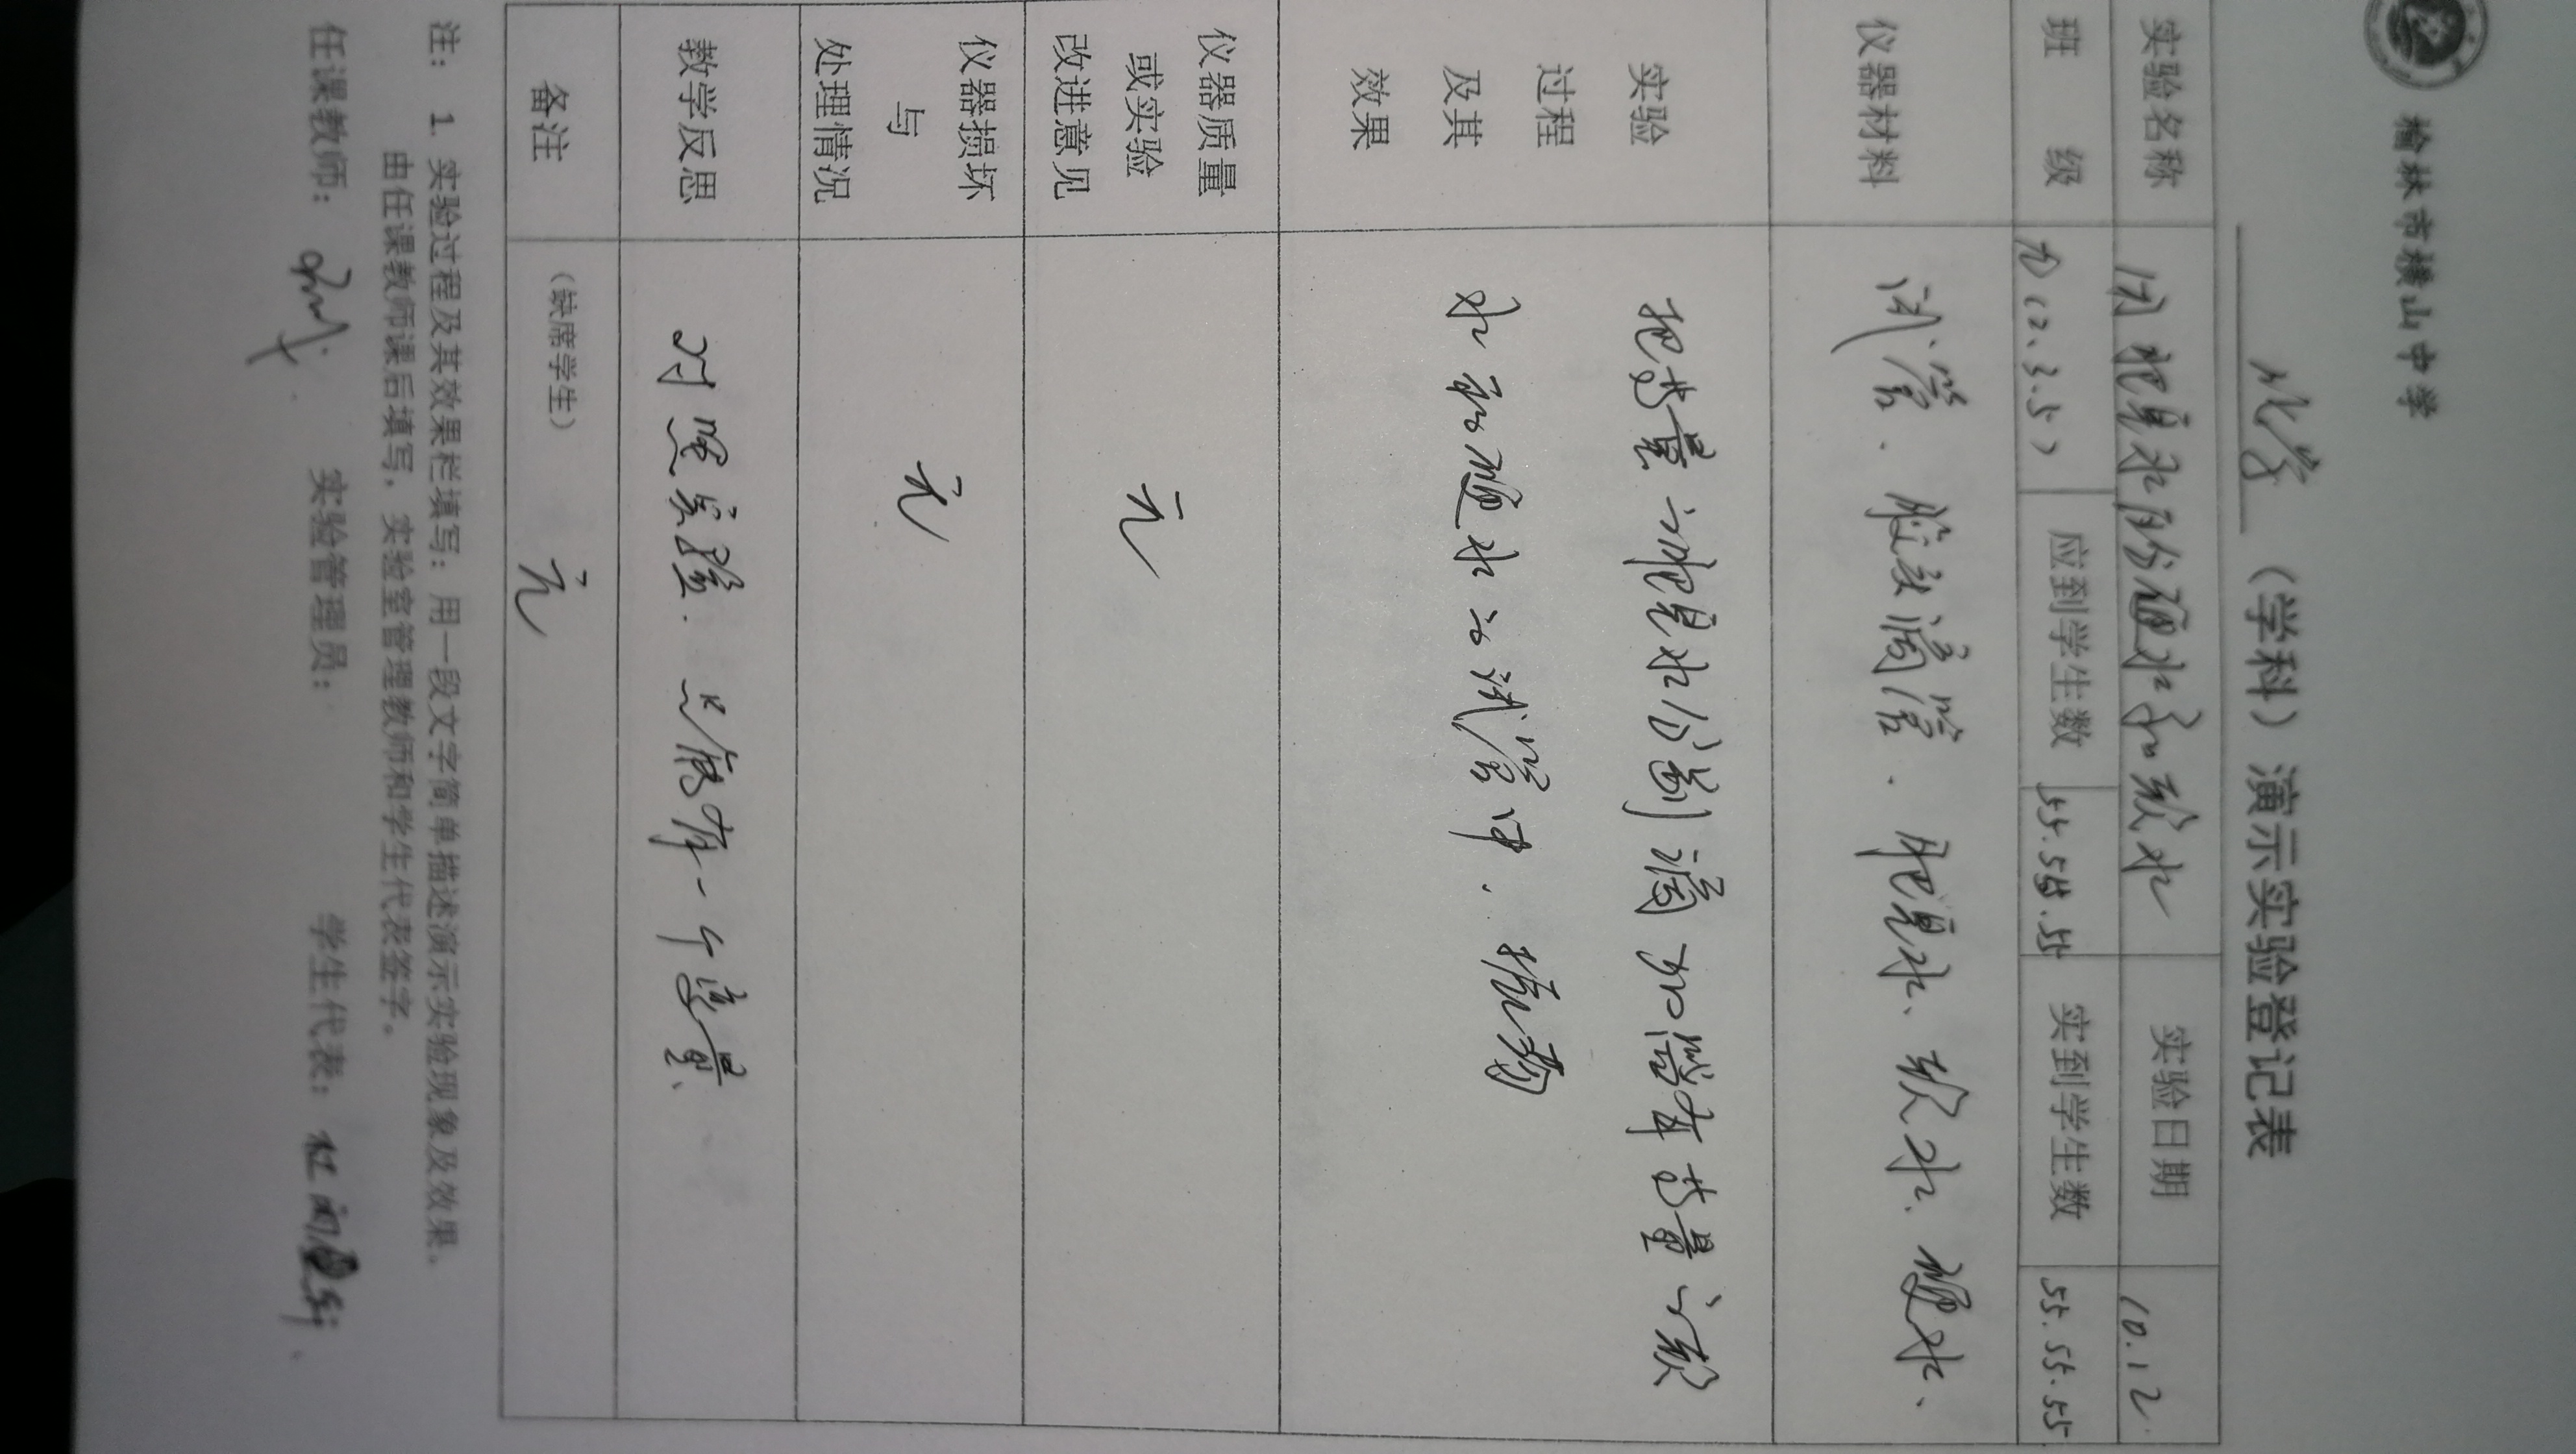 榆林市横山中学
化学（学科）演示实验登记表
实验名称 用肥皂水区分硬水和软水 实验日期 10.12
班 级 九(2.3.5) 应到学生数 55.55.55 实到学生数 55.55.55
仪器材料 试管.胶头滴管.肥皂水、软水、硬水、
实验
过程
及其
效果
把等量的肥皂水分别滴加潜等量的软
水和硬水的试管中.振荡
仪器质量
或实验
改进意见
无
仪器损坏
与
处理情况
无
教学反思 对照实验.只能有一个变量、
备注 （缺席学生） 无
注： 1. 实验过程及其效果栏填写：用一段文字简单描述演示实验现象及效果。
由任课教师课后填写，实验室管理教师和学生代表签字。
任课教师： 实验管理员： 学生代表：